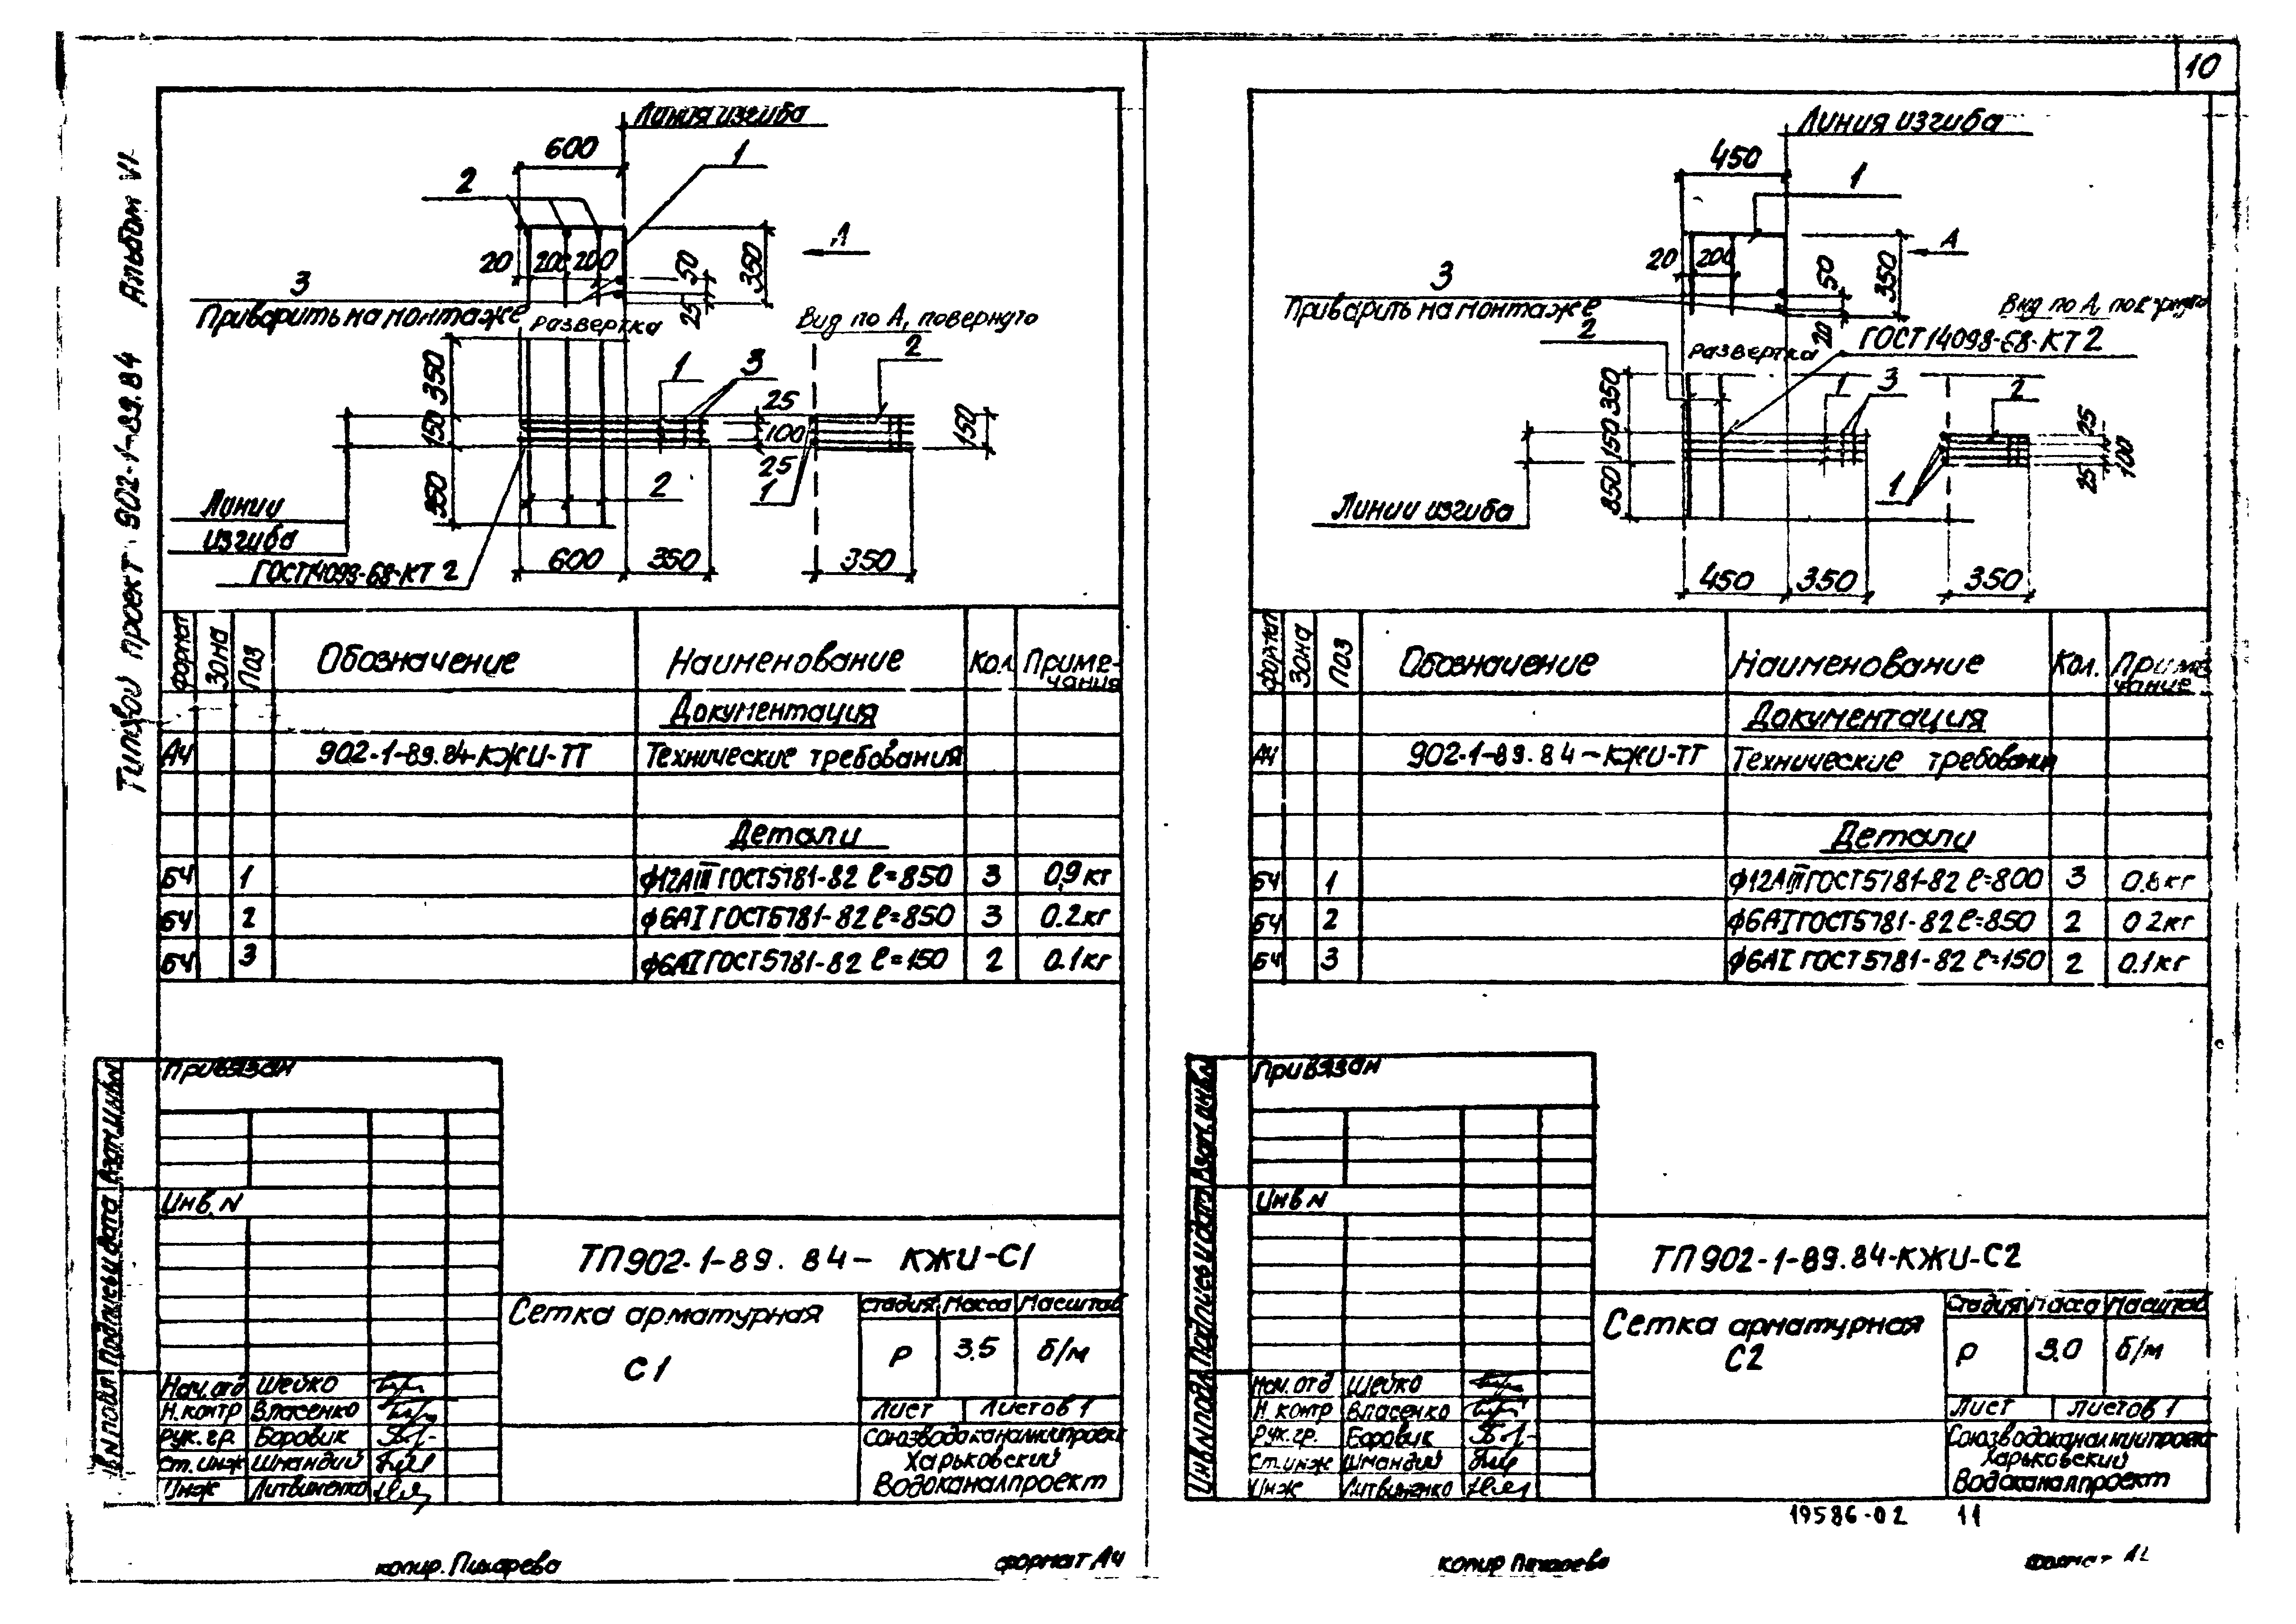 10
Типовой проект 902-1-89.84 Альбом VI
Линия изгиба
600
1
2
20 200 200
50
350
25
А
3
Приварить на монтаже
Развертка
Вид по А, повернуто
350
150
350
1
3
2
25
100
25
150
1
2
Линии
изгиба
ГОСТ14098-68-КТ 2
600 350 350
Формат Зона Поз Обозначение Наименование Кол. Приме-
чания
Документация
А4 902-1-89.84-КЖИ-ТТ Технические требования
Детали
БЧ 1 ф12АIII ГОСТ5781-82 ℓ=850 3 0,9кг
БЧ 2 ф6АI ГОСТ5781-82 ℓ=850 3 0.2кг
БЧ 3 ф6АI ГОСТ5781-82 ℓ=150 2 0.1кг
Привязан
Инв. N
Подпись и дата Взам. инв N
ТП902-1-89.84- КЖИ-С1
Сетка арматурная
С1
Стадия Масса Масштаб
Р 3.5 б/м
Лист Листов 1
Нач.отд Шейко
Н.контр Власенко
Рук.гр. Боровик
Ст.инж Шмандий
Инж Литвиненко
Союзводоканалниипроект
Харьковский
Водоканалпроект
копир. Пихарева
формат А4
Линия изгиба
450
1
20 200
50
350
20
А
3
Приварить на монтаже
2
Развертка
Вид по А, повернуто
ГОСТ14098-68-КТ 2
350
150
850
1
3
2
25
100
25
1
Линии изгиба
450 350 350
Формат Зона Поз Обозначение Наименование Кол. Приме
чание
Документация
А4 902-1-89.84-КЖИ-ТТ Технические требования
Детали
БЧ 1 ф12АIII ГОСТ5781-82 ℓ=800 3
БЧ 2 ф6АI ГОСТ5781-82 ℓ=850 2 0.2кг
БЧ 3 ф6АI ГОСТ5781-82 ℓ=150 2 0.1кг
Привязан
Инв N
Инв.N подл. Подпись и дата Взам. инв.N
ТП902-1-89.84-КЖИ-С2
Сетка арматурная
С2
Стадия Масса Масштаб
Р 3.0 б/м
Лист Листов 1
Нач. отд Шейко
Н. контр Власенко
Рук.гр. Боровик
Ст.инж Шмандий
Инж Литвиненко
Союзводоканалниипроект
Харьковский
Водоканалпроект
19586-02 11
копир Пихарева
формат